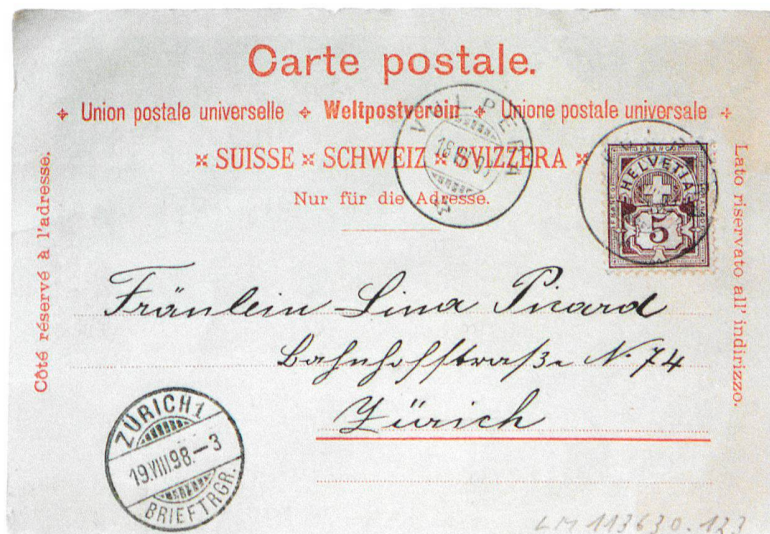 Carte postale.
✢ Union postale universelle ✢ Weltpostverein ✢ Unione postale universale ✢
✕ SUISSE ✕ SCHWEIZ ✕ SVIZZERA ✕
Nur für die Adresse.
Côté réservé à l'adresse.
Lato riservato all' indirizzo.
VULPERA
HELVETIA
FRANCO
5
Fräulein Lina Picard
Bahnhofstraße N. 74
Zürich
ZÜRICH 1
19.VIII.98.–3
BRIEFTRGR.
LM 113630.123